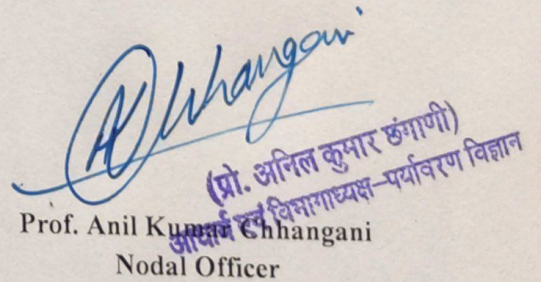 AChhangani
(प्रो. अनिल कुमार छंगाणी)
आचार्य एवं विभागाध्यक्ष–पर्यावरण विज्ञान
Prof. Anil Kumar Chhangani
Nodal Officer